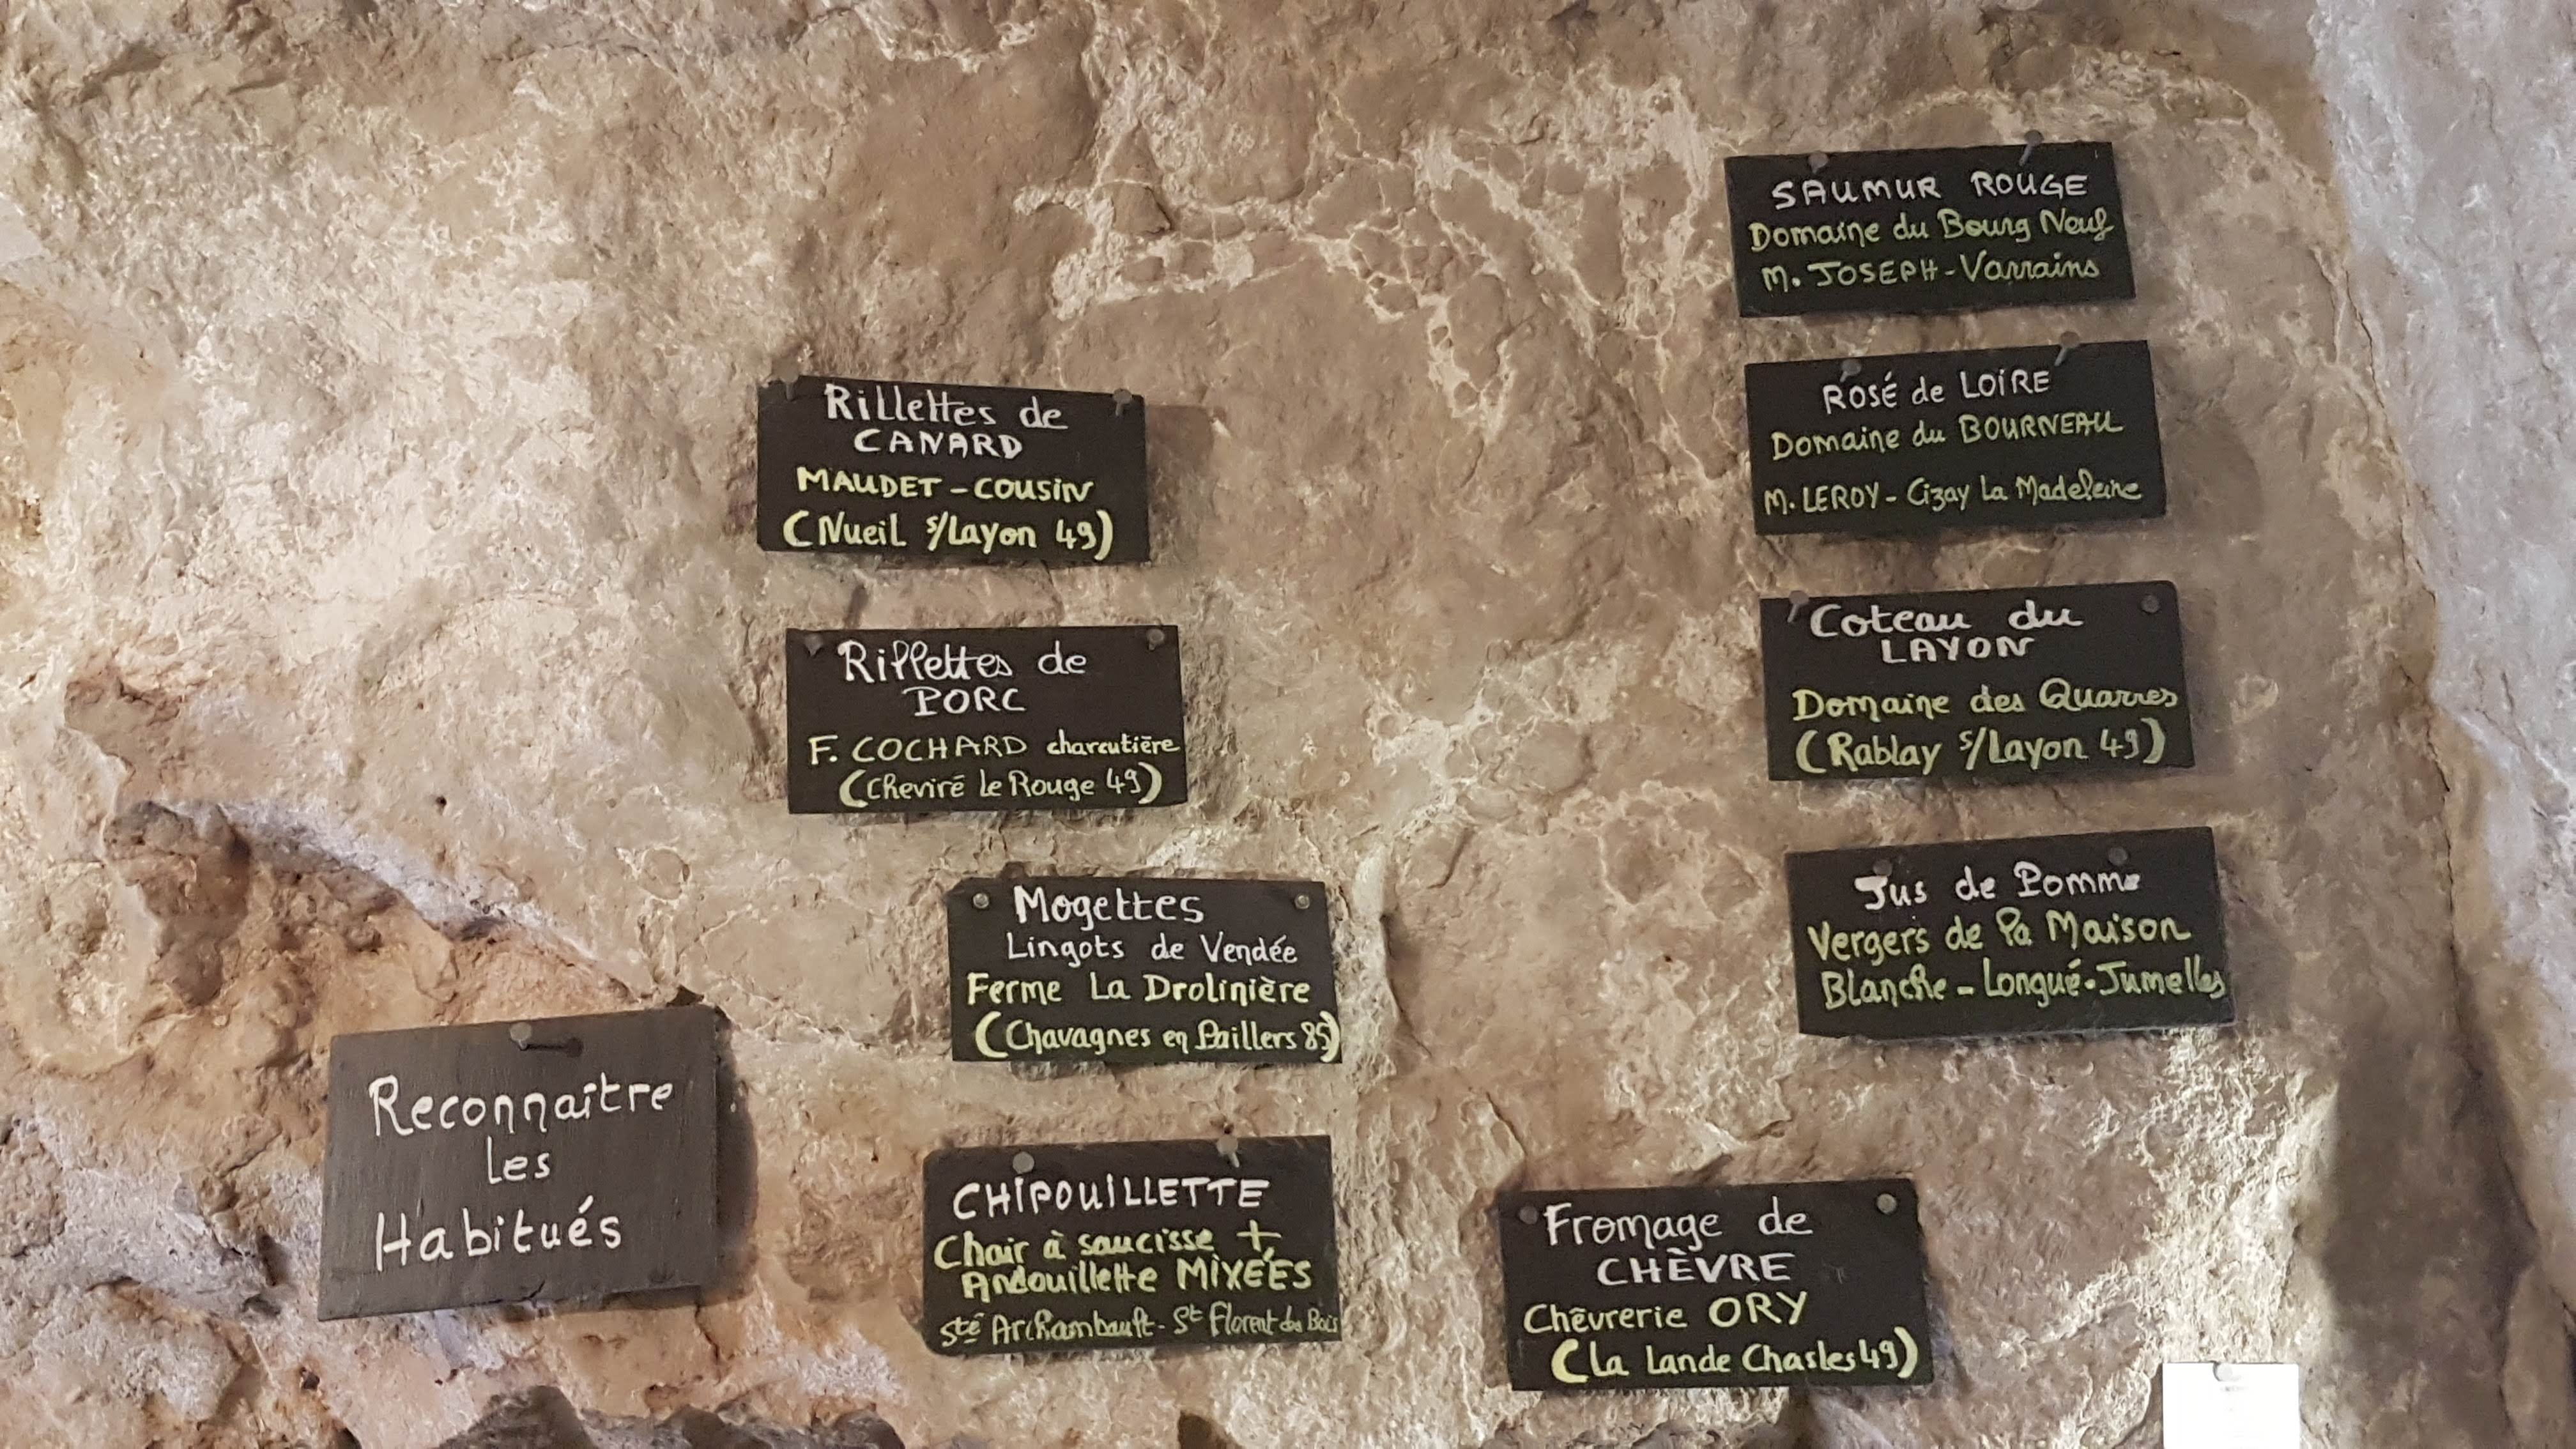 Rillettes de
CANARD
MAUDET - COUSIN
(Nueil s/Layon 49)
Rillettes de
PORC
F. COCHARD charcutière
(Cheviré le Rouge 49)
Mogettes
Lingots de Vendée
Ferme La Drolinière
(Chavagnes en Paillers 85)
Reconnaître
les
Habitués
CHIPOUILLETTE
Chair à saucisse +
Andouillette MIXÉES
Sté Archambault - St Florent des Bois
SAUMUR ROUGE
Domaine du Bourg Neuf
M. JOSEPH - Varrains
ROSÉ de LOIRE
Domaine du BOURNEAU
M. LEROY - Cizay La Madeleine
Coteau du
LAYON
Domaine des Quarres
(Rablay s/Layon 49)
Jus de Pomme
Vergers de la Maison
Blanche - Longué-Jumelles
Fromage de
CHÈVRE
Chèvrerie ORY
(La Lande Chasles 49)